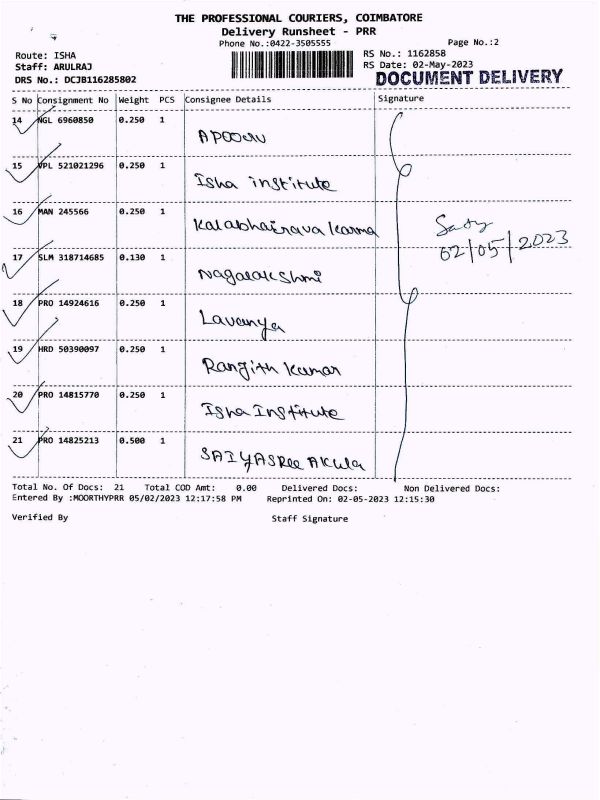 THE PROFESSIONAL COURIERS, COIMBATORE
Delivery Runsheet - PRR
Phone No.:0422-3505555
Page No.:2
Route: ISHA
RS No.: 1162858
Staff: ARULRAJ
RS Date: 02-May-2023
DRS No.: DCJB116285802
DOCUMENT DELIVERY
S No Consignment No Weight PCS Consignee Details Signature
14 NGL 6960850 0.250 1
APOORV
15 VPL 521021296 0.250 1
Isha institute
16 MAN 245566 0.250 1
Kalabhairava karma
02/05/2023
17 SLM 318714685 0.130 1
Nagalakshmi
18 PRO 14924616 0.250 1
Lavanya
19 HRD 50390097 0.250 1
Ranjith kumar
20 PRO 14815770 0.250 1
Isha Institute
21 PRO 14825213 0.500 1
SAIYASRee AKula
Total No. Of Docs: 21 Total COD Amt: 0.00 Delivered Docs: Non Delivered Docs:
Entered By :MOORTHYPRR 05/02/2023 12:17:58 PM Reprinted On: 02-05-2023 12:15:30
Verified By Staff Signature